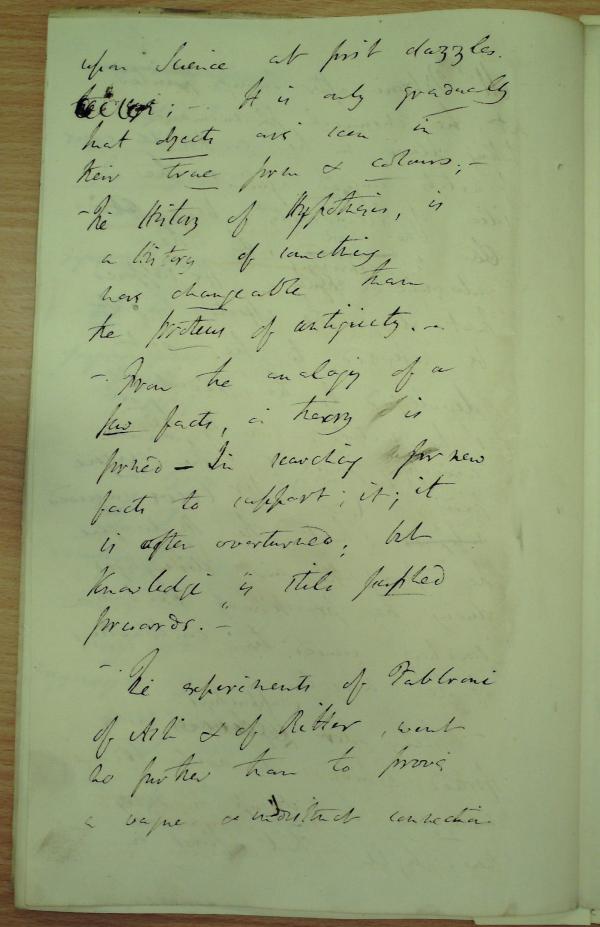 upon Science at first dazzles.
; - It is only gradually
that objects are seen in
their true form & colours; -
- The History of Hypothesis, is
a History of something
more changeable than
the proteus of antiquity. -
- From the analogy of a
few facts, a theory is
formed - In searching for new
facts to support; it; it
is often overturned; but
Knowledge is still pushed
forwards. -
- The experiments of Fabbroni
of Ash & of Ritter, went
no further than to prove
a vague & indistinct connection